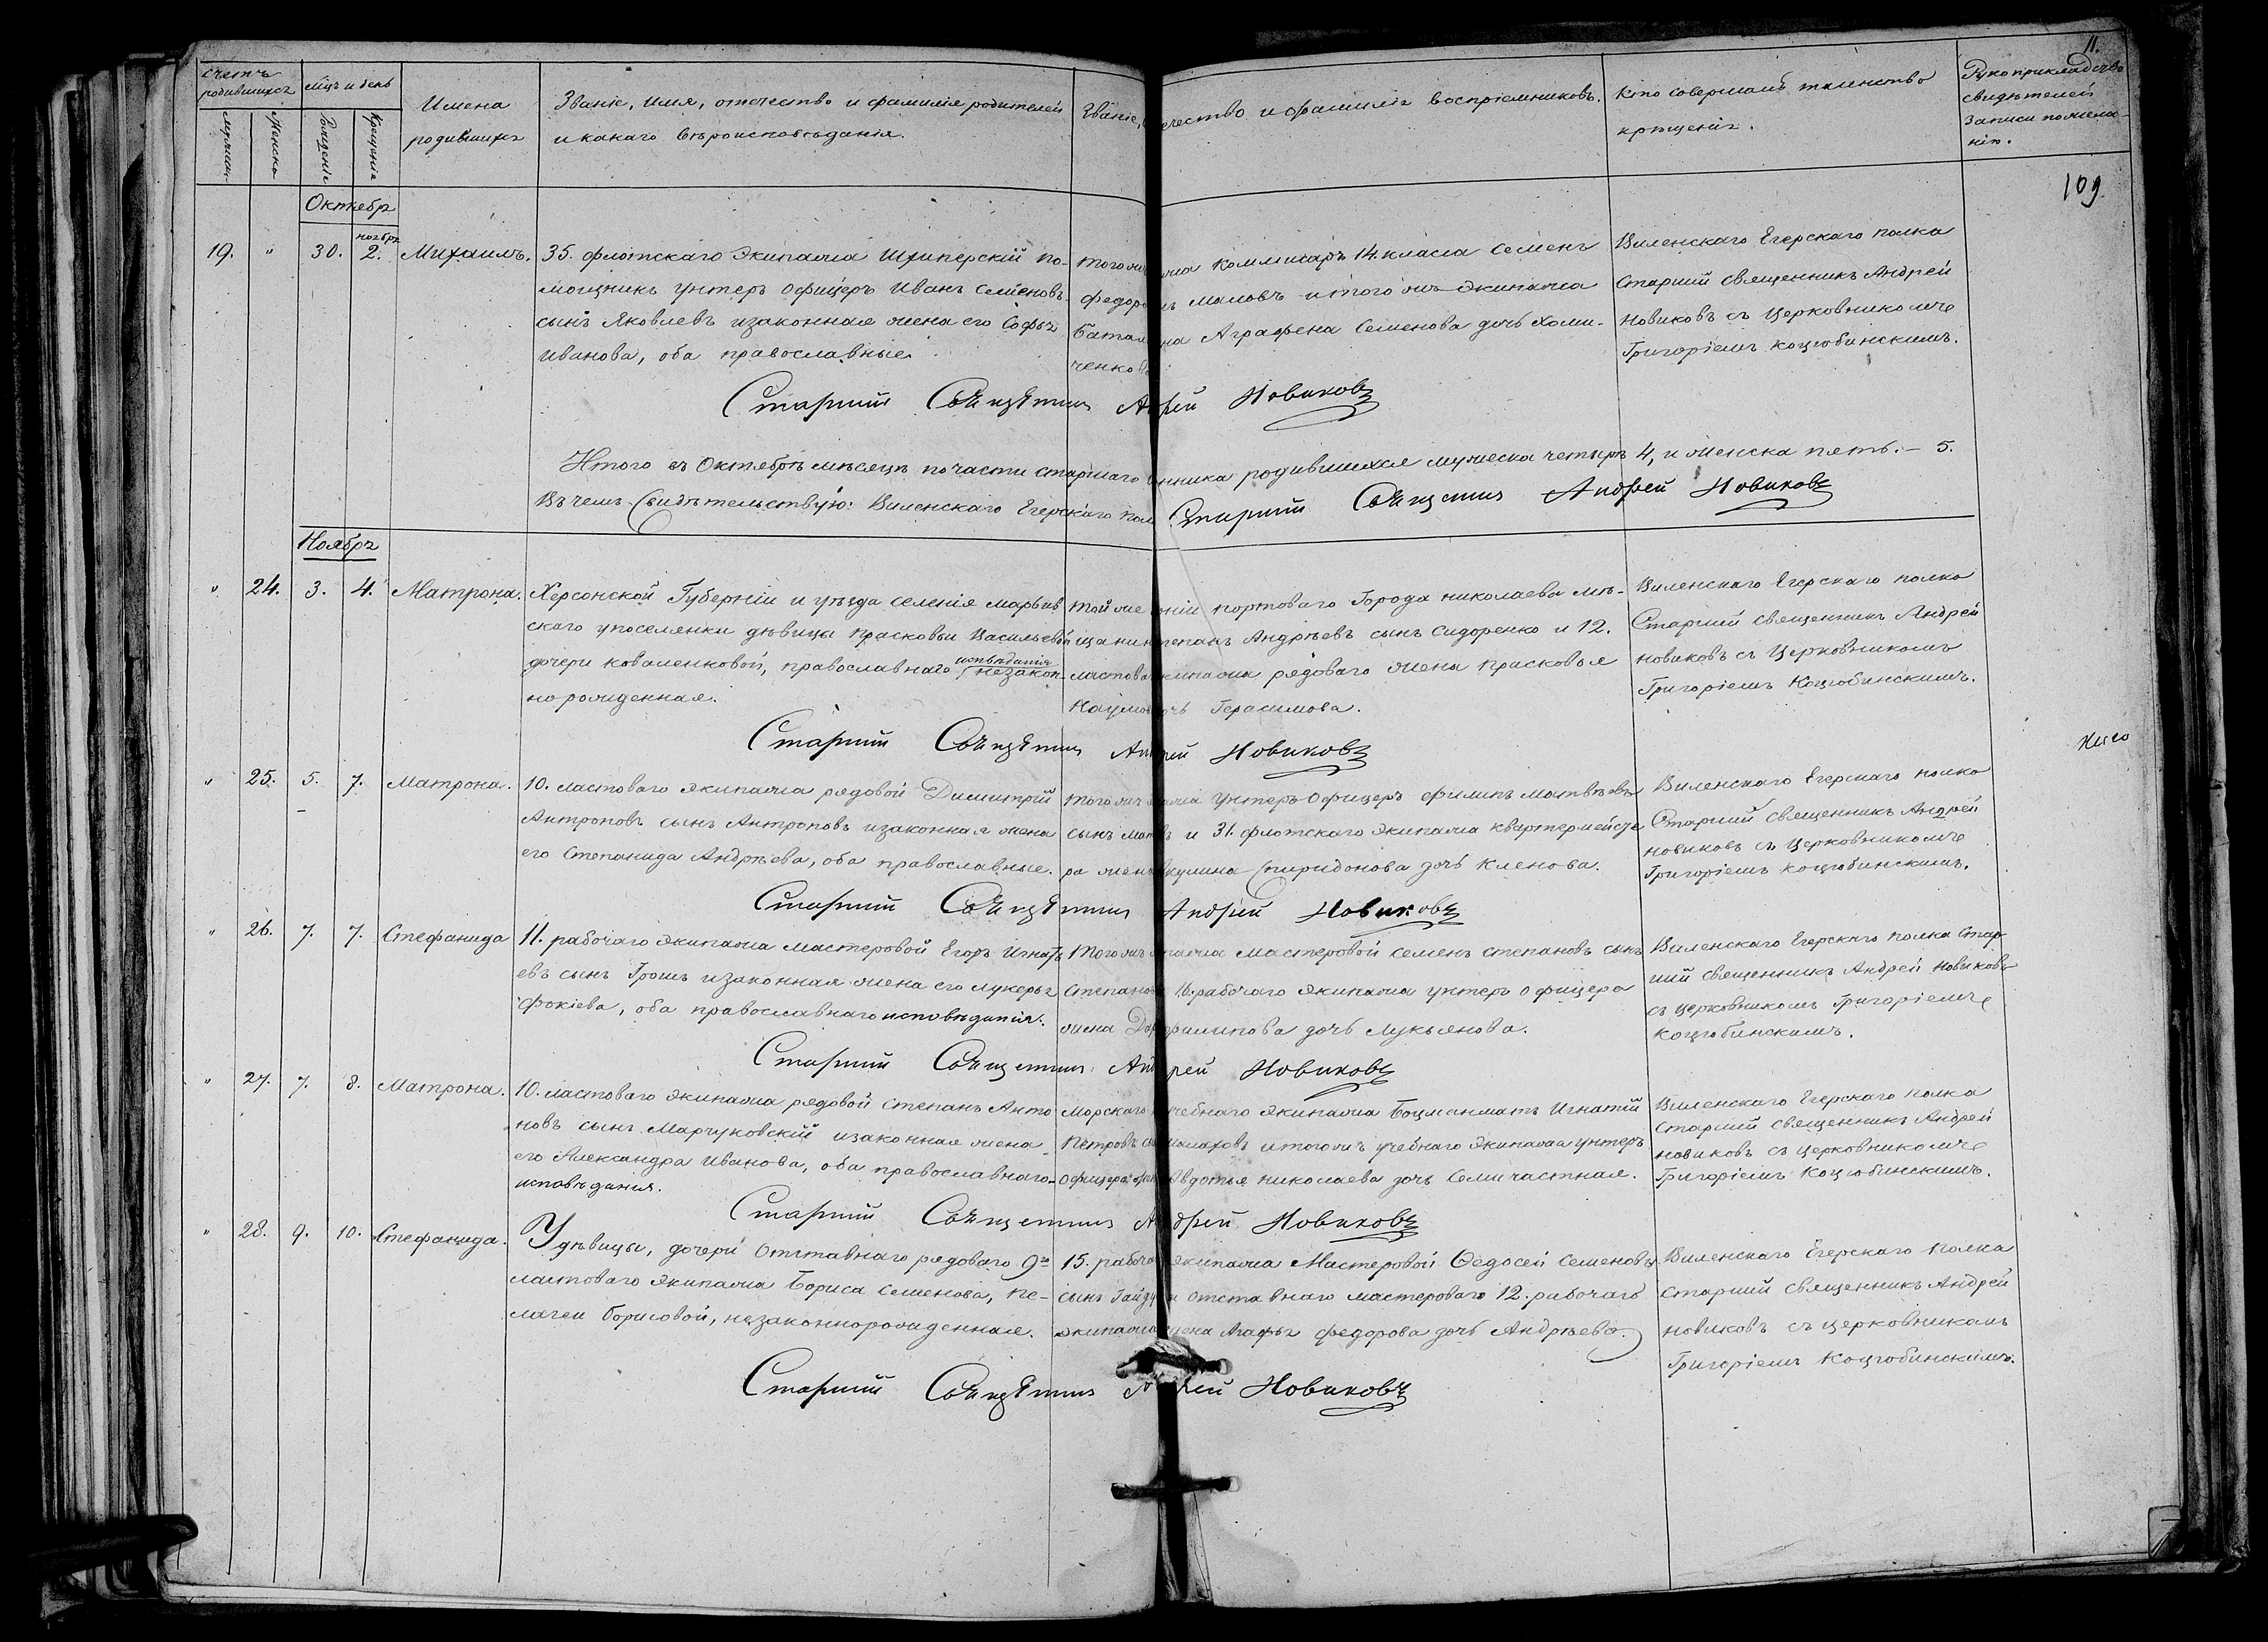 11.
Счетъ родившихся
Мужеска
Женска
Мцъ и день
Рожденія
Крещенія
Имена
родившихся
Званіе, имя, отечество и фамилія родителей
и какаго вѣроисповѣданія.
Званіе,
ечество и фамилія воспріемниковъ.
Кто совершалъ таинство
крещенія.
Рукоприкладство
свидѣтелей
записи пожела-
нію.
109.
Октября
19. " 30. ноября 2. Михаилъ.
35. флотскаго Экипажа Шхиперскій по-
мощникъ унтеръ офицеръ Иванъ Семеновъ
сынъ Яковлевъ изаконная жена его Софья
Иванова, оба православные
тогожъ
жа Коммисаръ 14. класса Семенъ
федоро
ъ Мамовъ итого жъ экипажа
Батал
на Аграфена Семенова дочь Хоми-
ченкова
Виленскаго Егерскаго полка
Старшій Священникъ Андрей
Новиковъ съ Церковникомъ
Григоріемъ Коцюбинскимъ.
Старшій Священникъ Андрей Новиковъ
Итого въ Октябрѣ мѣсяцѣ почасти старшаго
нника родившихся мужеска четыре 4, и женска пять. – 5.
Въ чемъ Свидѣтельствую: Виленскаго Егерскаго пол
Старшій Священникъ Андрей Новиковъ
Ноября
" 24. 3. 4. Матрона.
Херсонской Губерніи и уѣзда селенія Марьев
скаго упоселянки дѣвицы Прасковьи Васильевой
дочери Коваленковой, православнаго исповѣданія незакон-
но рожденная.
той же
рніи портоваго Города Николаева мѣ-
щанинъ
тепанъ Андрѣевъ сынъ Сидоренко и 12.
ластова
кипажа рядоваго жена Прасковья
Наумов
очь Герасимова.
Виленскаго Егерскаго полка
Старшій Священникъ Андрей
Новиковъ съ Церковникомъ
Григоріемъ Коцюбинскимъ.
Старшій Священникъ Андрей Новиковъ
" 25. 5. 7. Матрона.
10. ластоваго экипажа рядовой Димитрій
Антроповъ сынъ Антроповъ изаконная жена
его Степанида Андрѣева, оба православные.
тогожъ
пажа унтеръ-Офицеръ Филипъ Матвѣевъ
сынъ
и 31. флотскаго экипажа квартермейсте
ра жена
кулина Спиридонова дочь Кленова.
Виленскаго Егерскаго полка
Старшій Священникъ Андрей
Новиковъ съ Церковникомъ
Григоріемъ Коцюбинскимъ.
Старшій Священникъ Андрей Новиковъ
" 26. 7. 7. Стефанида
11. рабочаго экипажа мастеровой Егоръ Игнать
евъ сынъ Грошъ изаконная жена его Лукерья
Фокіева, оба православнаго исповѣданія.
Тогожъ
пажа мастеровой Семенъ Степановъ сынъ
Степано
16. рабочаго экипажа унтеръ офицера
жена Дар
филипова дочь Лукьянова.
Виленскаго Егерскаго полка Стар-
шій Священникъ Андрей Новиковъ
съ церковникомъ Григоріемъ
Коцюбинскимъ.
Старшій Священникъ Андрей Новиковъ
" 27. 7. 8. Матрона.
10. ластоваго экипажа рядовой Степанъ Анто
новъ сынъ Марчуковскій изаконная жена
его Александра Иванова, оба православнаго
исповѣданія.
Морскаго
учебнаго экипажа Боцманматъ Игнатій
Петровъ сы
Малаховъ итогожъ учебнаго экипажа унтеръ
офицера жена
Авдотья Николаева дочь Семичастная.
Виленскаго Егерскаго полка
Старшій Священникъ Андрей
Новиковъ съ церковникомъ
Григоріемъ Коцюбинскимъ.
Старшій Священникъ Андрей Новиковъ
" 28. 9. 10. Стефанида.
Удѣвицы, дочери Отставнаго рядоваго 9го
ластоваго экипажа Бориса Семенова, Пе-
лагеи Борисовой, незаконнорожденная.
15. рабоча
экипажа Мастеровой Ѳедосей Семеновъ
сынъ Гайду
и отставнаго мастероваго 12. рабочаго
экипажа
жена Агафья Федорова дочь Андрѣева.
Виленскаго Егерскаго полка
Старшій Священникъ Андрей
Новиковъ съ церковникомъ
Григоріемъ Коцюбинскимъ.
Старшій Священникъ Андрей Новиковъ